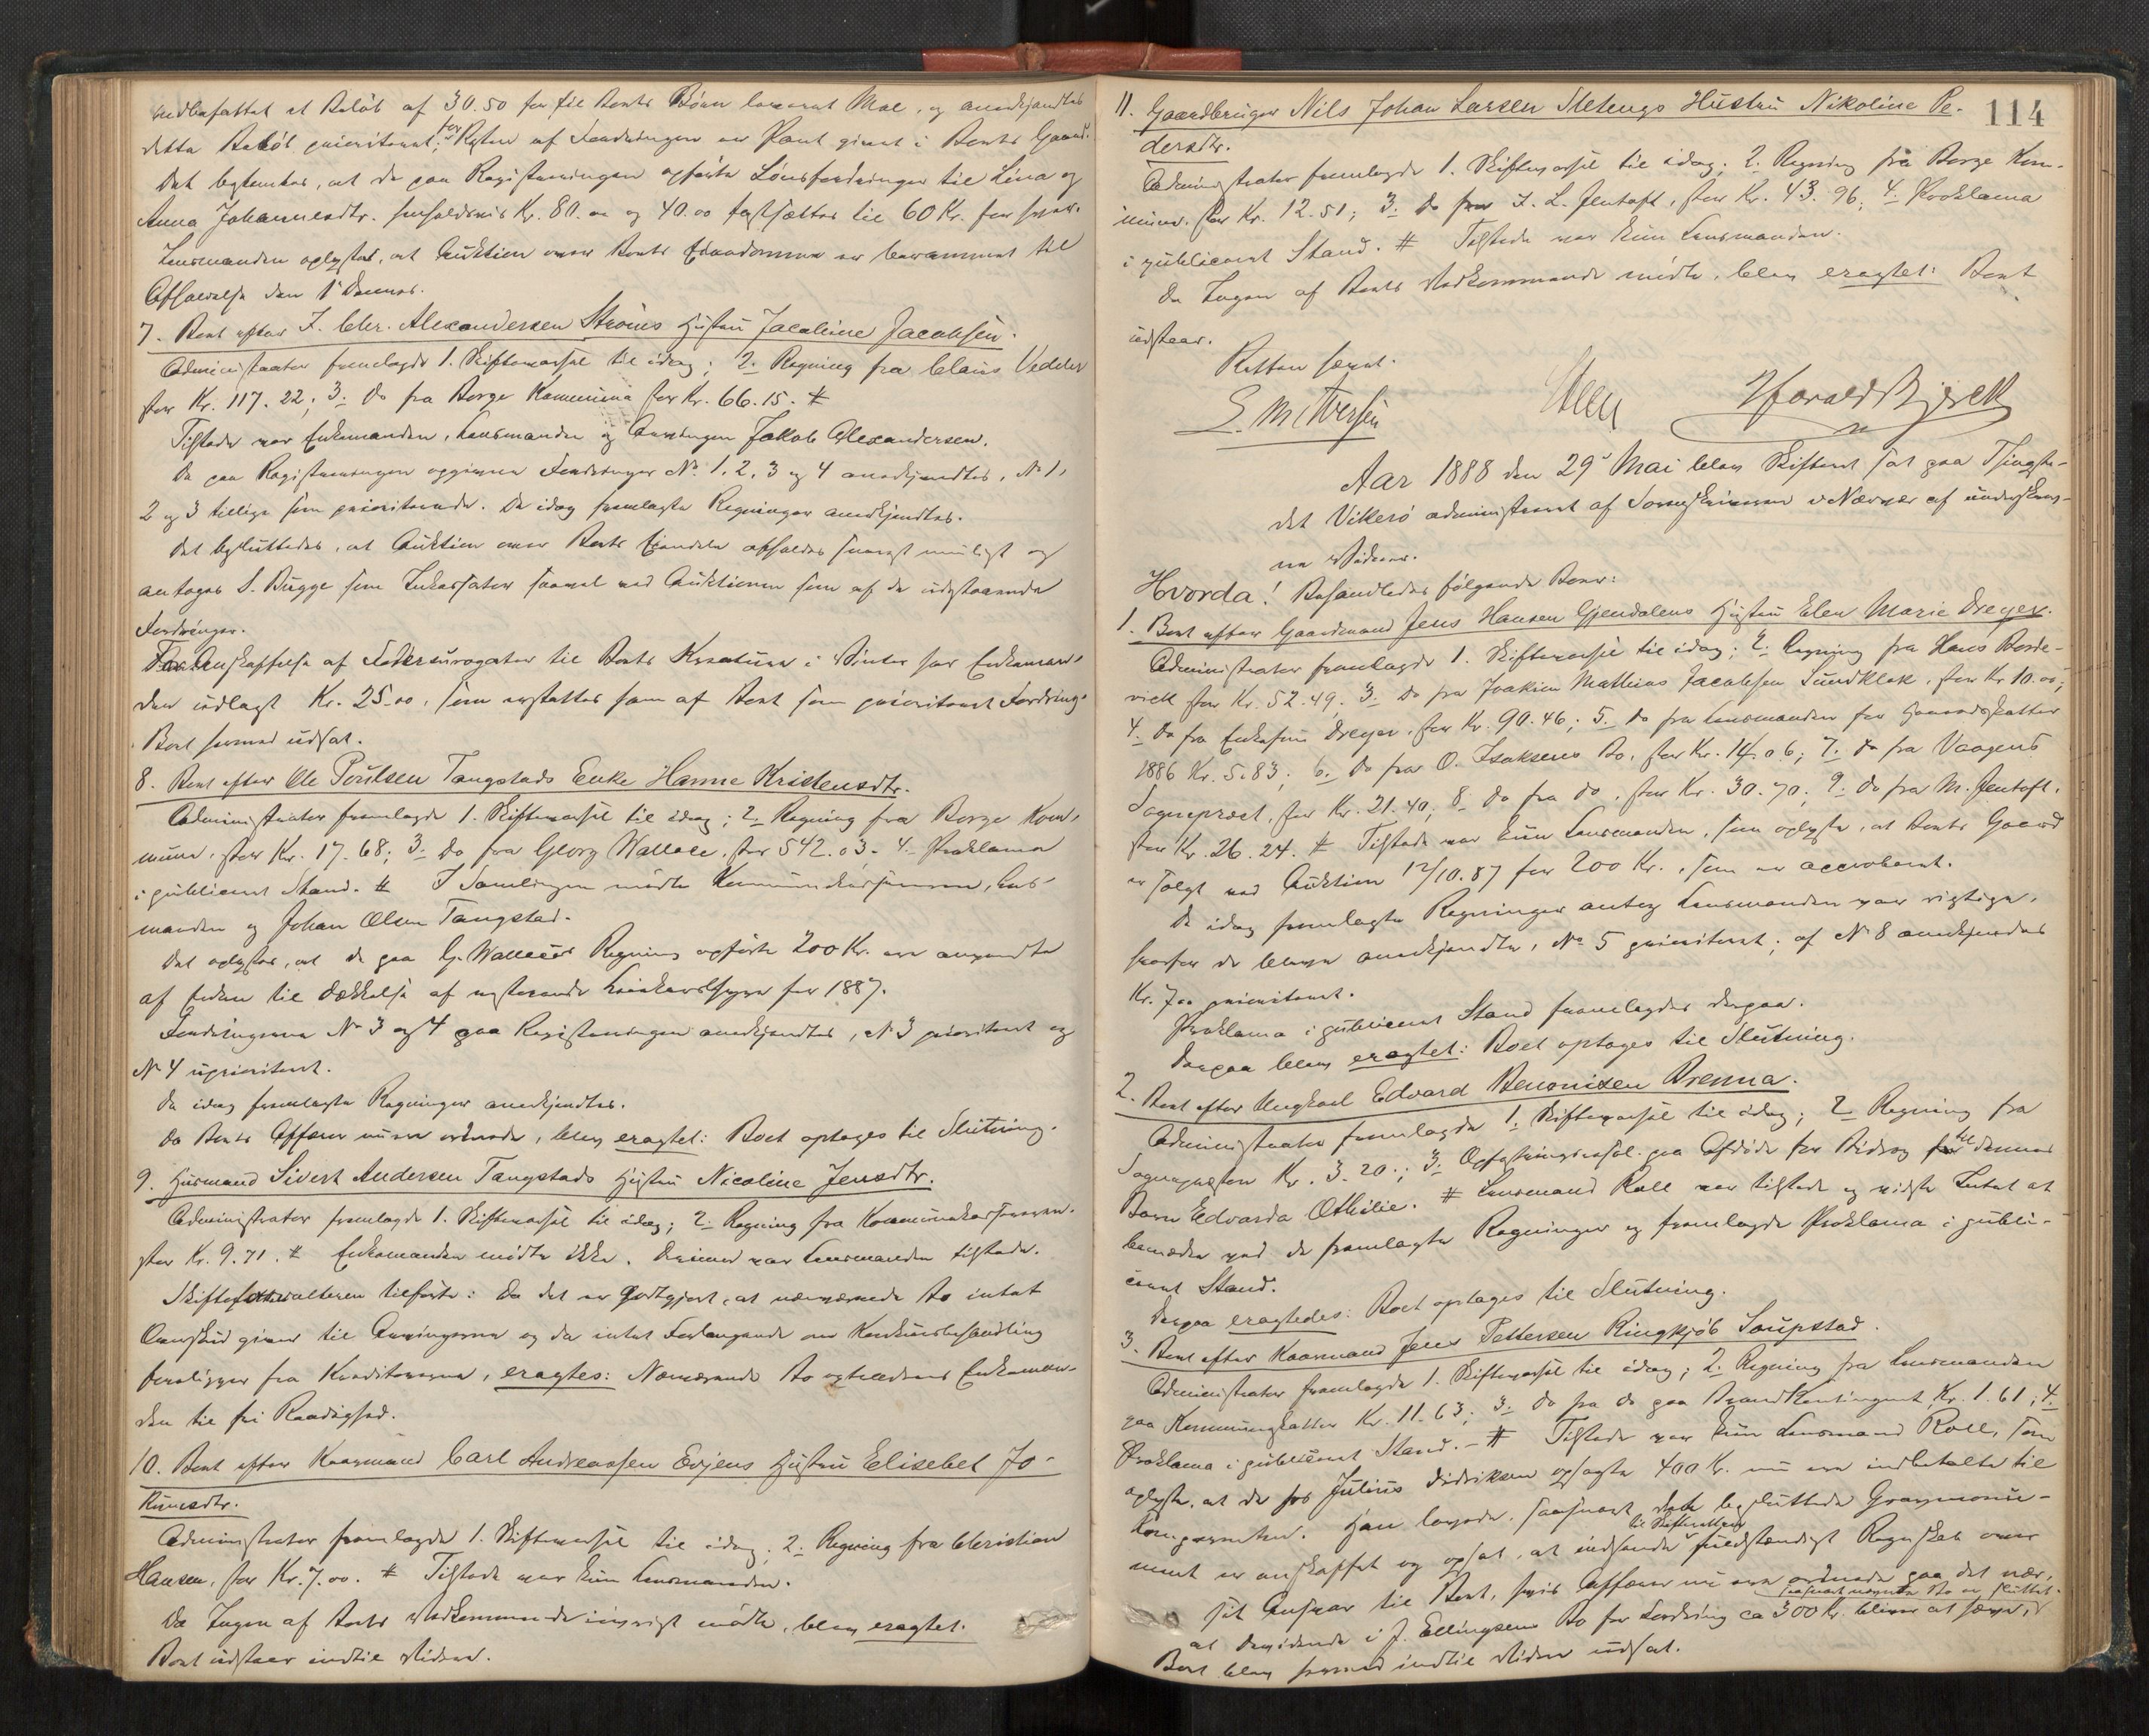 indbefattet et Beløb af 30.50 for til Boets Børn leveret Mæl, og anerkjendtes
dette Beløb prioriteret; for Resten af Fordringen er Pant givet i Boets Gaard.
Det bestemtes, at de paa Registreringen opførte Lønsfordringer til Lina og
Anna Johannesdtr. henholdsvis Kr. 80.00 og 40.00 fastsættes til 60 Kr. for hver.
Lensmanden oplyste, at Auktion over Boets Eiendomme er berammet til
Afholdelse den 1' Dennes.
7. Boet efter J. Chr. Alexandersen Strøms Hustru Jacobine Jacobsen.
Administrator fremlagde 1. Skiftevarsel til idag; 2. Regning fra Claus Vedeler
stor Kr. 117.22; 3. Do fra Borge Kommune stor Kr. 66.15. #
Tilstede var Enkemanden, Lensmanden og Arvingen Jakob Alexandersen.
De paa Registreringen opgivne Fordringer No. 1, 2, 3 og 4 anerkjendtes, No 1,
2 og 3 tillige som prioriterede. De idag fremlagte Regninger anerkjendtes.
Det besluttedes, at Auktion over Boets Eiendele afholdes snarest muligt og
antoges S. Bugge som Inkassator saavel ved Auktionen som af de udestaaende
Fordringer.
For Anskaffelse af Fodersurogater til Boets Kreature i Vinter har Enkeman-
den udlagt Kr. 25.00, som erstattes ham af Boet som prioriteret Fordring.
Boet hermed udsat.
8. Boet efter Ole Poulsen Tangstads Enke Hanne Kristensdtr.
Administrator fremlagde 1. Skiftevarsel til idag; 2. Regning fra Borge Kom-
mune, stor Kr. 17.68; 3. Do fra Georg Wallace, stor 542.03. 4. Proklama
i publiceret Stand. # I Samlingen mødte Kommunekassereren, Lens-
manden og Johan Olsen Tangstad.
Det oplystes, at de paa G. Wallaces Regning opførte 200 Kr. ere anvendte
af Enken til Dækkelse af resterende for 1887.
Fordringerne No 3 og 4 paa Registreringen anerkjendtes, No 3 prioriteret og
No 4 uprioriteret.
De idag fremlagte Regninger anerkjendtes.
Da Boets Affærer nu ere ordnede, blev eragtet: Boet optages til Slutning.
9. Husmand Sivert Andersen Tangstads Hustru Nicoline Jensdtr.
Administrator fremlagde 1. Skiftevarsel til idag; 2. Regning fra Kommunekassereren
stor Kr. 9.71. # Enkemanden mødte ikke. Derimod var Lensmanden tilstede.
Skifteforvalteren tilførte: Da det er godtgjort, at nærværende Bo intet
Overskud giver til Arvingerne og da intet Forlangende om Konkursbehandling
foreligger fra Kreditorerne, eragtes: Nærværende Bo extraderes Enkeman-
den til fri Raadighed.
10. Boet efter Kaarmand Carl Andreassen Evjens Hustru Elisebet Jo-
kumsdtr.
Administrator fremlagde 1. Skiftevarsel til idag; 2. Regning fra Christian
Hansen, stor Kr. 7.00. # Tilstede var kun Lensmanden.
Da Ingen af Boets Vedkommende iøvrigt mødte, blev eragtet:
Boet udstaar indtil Videre.
114
11. Gaardbruger Nils Johan Larsen Stetengs Hustru Nikoline Pe-
dersdtr.
Administrator fremlagde 1. Skiftevarsel til idag; 2. Regning fra Borge Kom-
mune stor Kr. 12.51; 3. Do fra J. L. Jentoft, stor Kr. 43.96; 4. Proklama
i publiceret Stand. # Tilstede var kun Lensmanden.
Da Ingen af Boets Vedkommende mødte, blev eragtet: Boet
udstaar.
Retten hævet.
S. M. Iversen Harald Bjerck
Aar 1888 den 29' Mai blev Skifteret sat paa Thingste-
det Vikerø administreret af Sorenskriveren i Nærvær af underskrev-
ne Vidner.
Hvorda! Behandledes følgende Boer:
1. Boet efter Gaardmand Jens Hansen Gjendalens Hustru Elen Marie Dreyer.
Administrator fremlagde 1. Skiftevarsel til idag; 2. Regning fra Hans Borde-
vick stor Kr. 52.49. 3. Do fra Joakim Mathias Jacobsen Sundklak, stor Kr 10.00;
4. Do fra Enkefru Dreyer, stor Kr. 90.46; 5. Do fra Lensmanden for Herredsskatter
1886 Kr. 5.83; 6. Do fra O. Isaksens Bo, stor Kr. 14.06; 7. Do fra Vaagens
Sogneprest, stor Kr. 21.40; 8. Do fra do, stor Kr. 30.70; 9. Do fra M. Jentoft,
stor Kr. 26.24. # Tilstede var kun Lensmanden, som oplyste, at Boets Gaard
er solgt ved Auktion 12/10.87 for 200 Kr., som er approberet.
De idag fremlagte Regninger antog Lensmanden var rigtige,
hvorfor de bleve anerkjendte, No 5 prioriteret; af No 8 anerkjendes
Kr. 7.00 prioriteret.
Proklama i publiceret Stand fremlagdes derpaa.
Derpaa blev eragtet: Boet optages til Slutning.
2. Boet efter Ungkarl Edvard Benonisen Brenna.
Administrator fremlagde 1. Skiftevarsel til idag; 2. Regning fra
Sognepresten Kr. 3.20; 3. paa Afdøde for Bidrag til dennes
Barn Edvarda Othilie. # Lensmand Roll var tilstede og vidste Intet at
bemærke ved de fremlagte Regninger og fremlagde Proklama i publi-
ceret Stand.
Derpaa eragtedes: Boet optages til Slutning.
3. Boet efter Kaarmand Jens Pettersen Ringkjøb Saupstad.
Administrator fremlagde 1. Skiftevarsel til idag; 2. Regning fra Lensmanden
paa Kommuneskatter Kr. 11.63; 3. Do fra do paa Brandkontingent Kr. 1.61; 4.
Proklama i publiceret Stand. - # Tilstede var kun Lensmand Roll, som
oplyste, at de hos Julius Didriksen opsagte 400 Kr. nu ere indbetalte til
Komparenten. Han lovede, saasnart det besluttede Gravmonu-
ment er anskaffet og opsat, at indsende til Skifteretten fuldstændigt Regnskab over
sit Ansvar til Boet, hvis Affærer nu ere ordnede paa det nær,
at Dividende i J. Ellingsens Bo for Fordring ca 300 Kr. bliver at hæve, saasnart nævnte Bo er sluttet.
Boet blev hermed indtil Videre udsat.